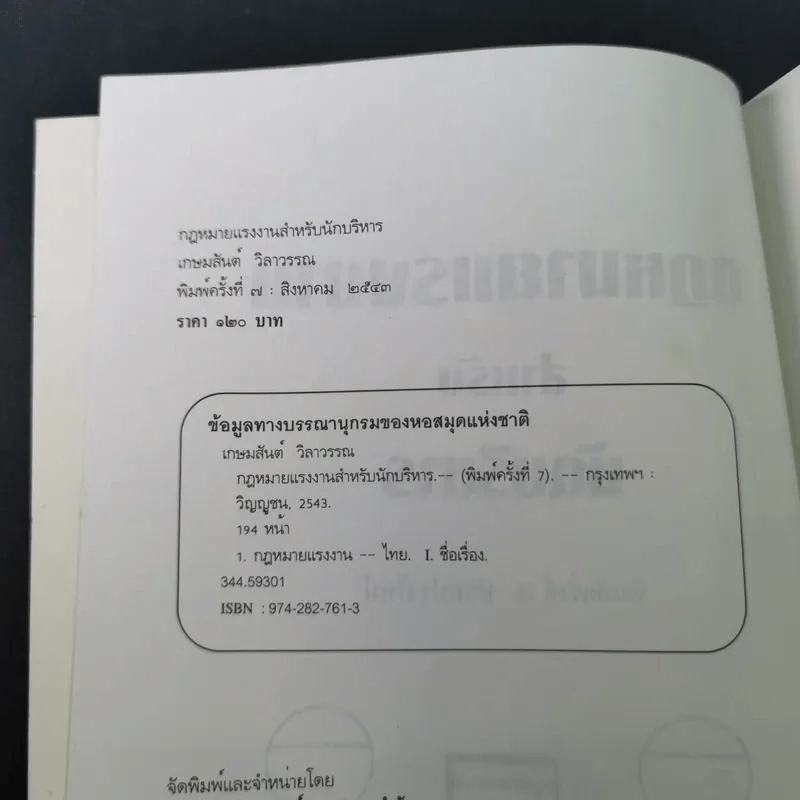 กฎหมายแรงงานสำหรับนักบริหาร
เกษมสันต์ วิลาวรรณ
พิมพ์ครั้งที่ ๗ : สิงหาคม ๒๕๔๓
ราคา ๑๒๐ บาท
ข้อมูลทางบรรณานุกรมของหอสมุดแห่งชาติ
เกษมสันต์ วิลาวรรณ
กฎหมายแรงงานสำหรับนักบริหาร.-- (พิมพ์ครั้งที่ 7). -- กรุงเทพฯ :
วิญญูชน, 2543.
194 หน้า
1. กฎหมายแรงงาน -- ไทย. I. ชื่อเรื่อง.
344.59301
ISBN : 974-282-761-3
จัดพิมพ์และจำหน่ายโดย